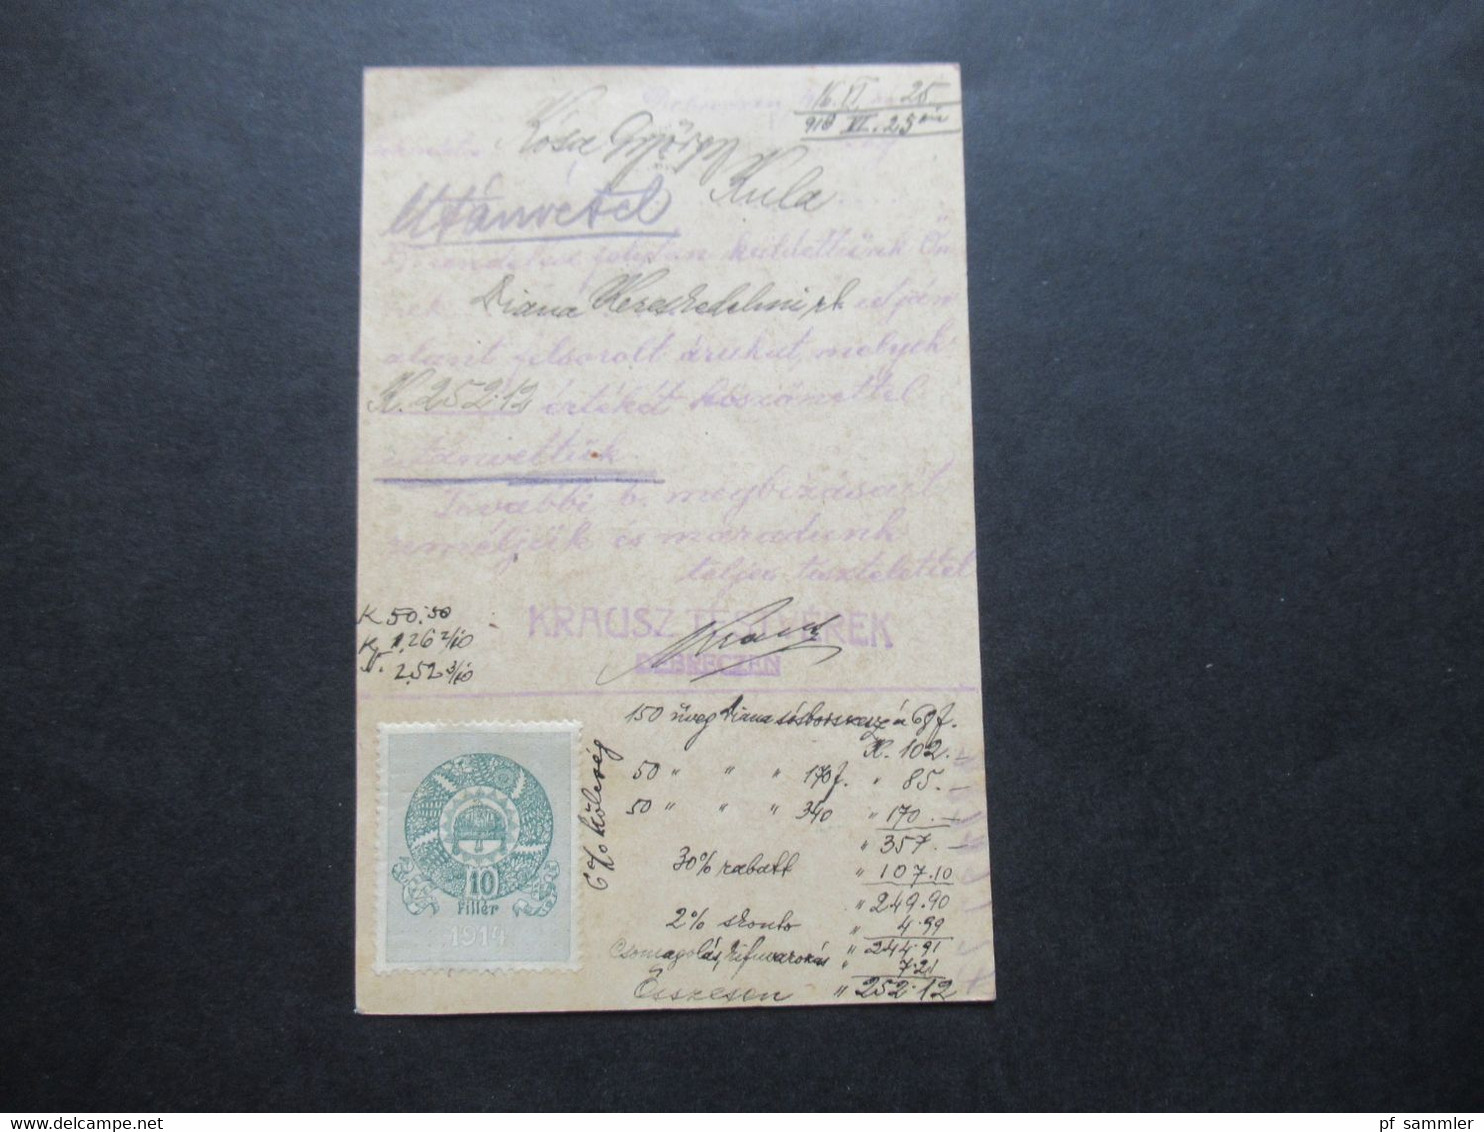 16. VI 25
918 VI. 25 én
Kósa György
Kula
Utánvétel
rendelése folytán küldöttünk Ön
nek Diana Kereskedelmi rt. utján
alant felsorolt árukat, melyek
K. 252.12 értékét köszönettel
utánvettük
További b. megbizásait
reméljük és maradunk
teljes tisztelettel
KRAUSZ TESTVÉREK
DEBRECZEN
K 50.50
K 1.26 2/10
2.52 3/10
150 üveg Diana sósborszesz á 68 f.
K. 102.—
50 " " " 170 f. " 85.—
50 " " " 340 " 170.—
" 357.—
30% rabatt " 107.10
" 249.90
2% skonto 4.99
" 244.91
Csomagolás, kifuvarozás " 7.21
Összesen " 252.12
6% költség
10
Fillér
1914
pf sammler